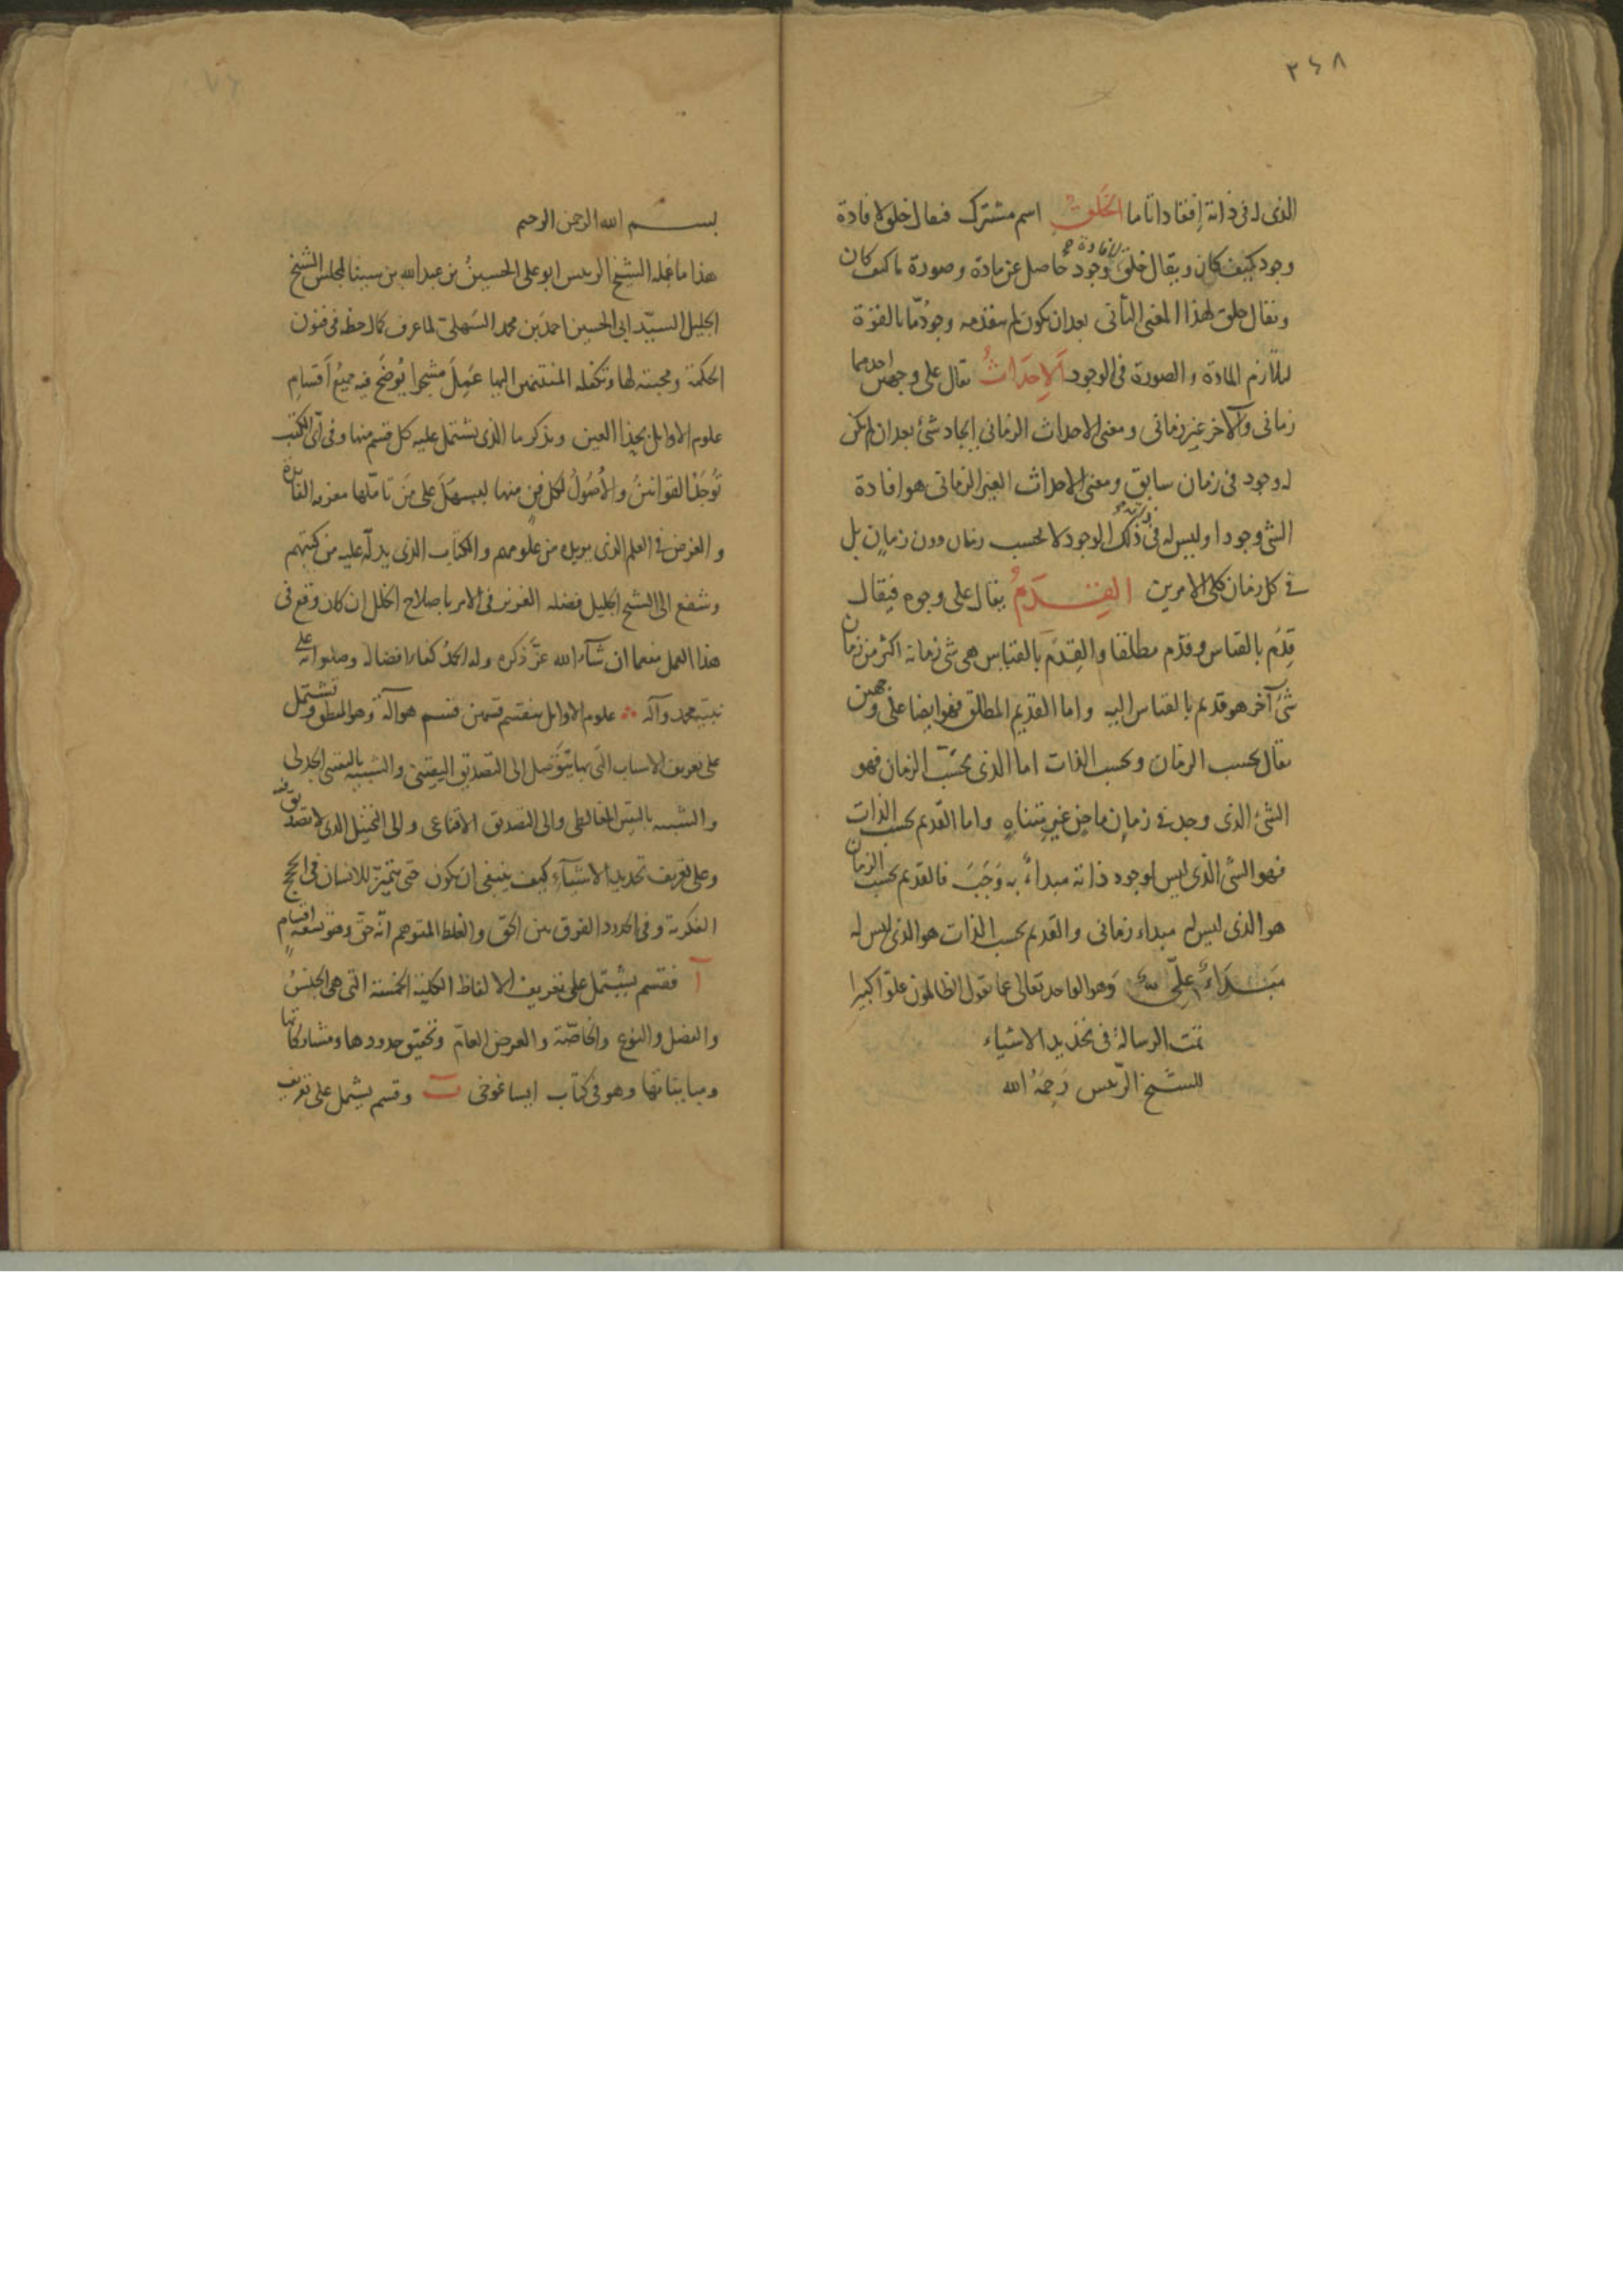 ٣٤٨
الذى له فى ذاته إفقادا تاما الخلق اسم مشترك فيقال خلق لافادة
وجود كيف كان ويقال خلق لافادة وجود حاصل عن مادة وصورة ما كيف كان
ويقال خلق لهذا المعنى الثانى بعد ان يكون لم يتقدمه وجودٌ مّا بالقوة
لتلازم المادة والصورة فى الوجود الاحداثُ يقال على وجهين احدهما
زمانى والآخر غير زمانى ومعنى الاحداث الزمانى ايجاد شئ بعد ان لم يكن
له وجود فى زمان سابق ومعنى الاحداث الغير الزمانى هو افادة
الشئ وجودا وليس له فى ذاته ذلك الوجود لا بحسب زمان دون زمان بل
فى كل زمان كلى الامرين القِدَمُ يقال على وجوه فيقال
قِدَم بالقياس وقدم مطلقا والقِدَم بالقياس هى شئ زمانه اكثر من زمان
شئ آخر هو قديم بالقياس اليه واما القديم المطلق فهو ايضا على وجهين
يقال بحسب الزمان وبحسب الذات اما الذى بحسب الزمان فهو
الشئ الذى وجد فى زمان ماضٍ غير متناهٍ واما القديم بحسب الذات
فهو الشئ الذى ليس لوجود ذاته مبداءٌ به وَجَبَ فالقديم بحسب الزمان
هو الذى ليس له مبداء زمانى والقديم بحسب الذات هو الذى ليس له
مَبْدَاءٌ وهو الواحد تعالى عما يقول الظالمون علوّا كبيرا
تمت الرسالة فى تحديد الاشياء
للشيخ الرئيس رَحِمَهُ الله
بســـم الله الرحمن الرحيم
هذا ما عمله الشيخ الرئيس ابو على الحسينُ بن عبد الله بن سينا لمجلس الشيخ
الجليل السيّد ابى الحسين احمدَ بن محمد السَهلىّ لما عرف كمال حظه فى فنون
الحكمة ومحبته لها وتكفله المنتمين اليها عَمِلَ مشجرا يُوضَح فيه جميعُ اَقسامِ
علوم الاوايل بجذا العين ويذكر ما الذى يشتمل عليه كل قسم منها وفى اىّ الكتب
تُوجَدُ القوانينُ والاُصُولُ لكل فن منها ليسهل على مَن تاملها معرفه الفائدة
والغرض فى العلم الذى يريده من علومهم والكتاب الذى يدلّه عليه من كتبهم
وشفع الى الشيخ الجليل فضله العزيز فى الامر باصلاح الخلل ان كان وقع فى
هذا العمل منعما ان شآء الله عزَّ ذكره وله الحمدُ كفاء افضاله وصلواته على
نبيه محمد وآله علوم الاوايل ينقسم قسمين فقسم هو آلة وهو المنطق ويشتمل
على تعريف الاسباب التى بها يتوَصل الى التصديق اليقينى والشبيه باليقينى الجدلى
والشبيه باليقين المغالطى والى التصديق الاقناعى والى التخييل الذى لا تصديق فيه
وعلى تعريف تحديد الاشيآءِ كيف ينبغى ان يكون حتى يتميّز للانسان فى الحجج
الفكرية وفى الحدود الفرق بين الحق والغلط المتوهم انّه حقّ وهو تسعة اقسام
آ فقسم يشتمل على تعريف الالفاظ الكلية الخمسة التى هى الجنسُ
والفصل والنوع والخاصّة والعرض العامّ وتحقيق حدودها ومشاركاتها
ومبايناتها وهو فى كتاب ايساغوخى ب وقسم يشتمل على تعريف